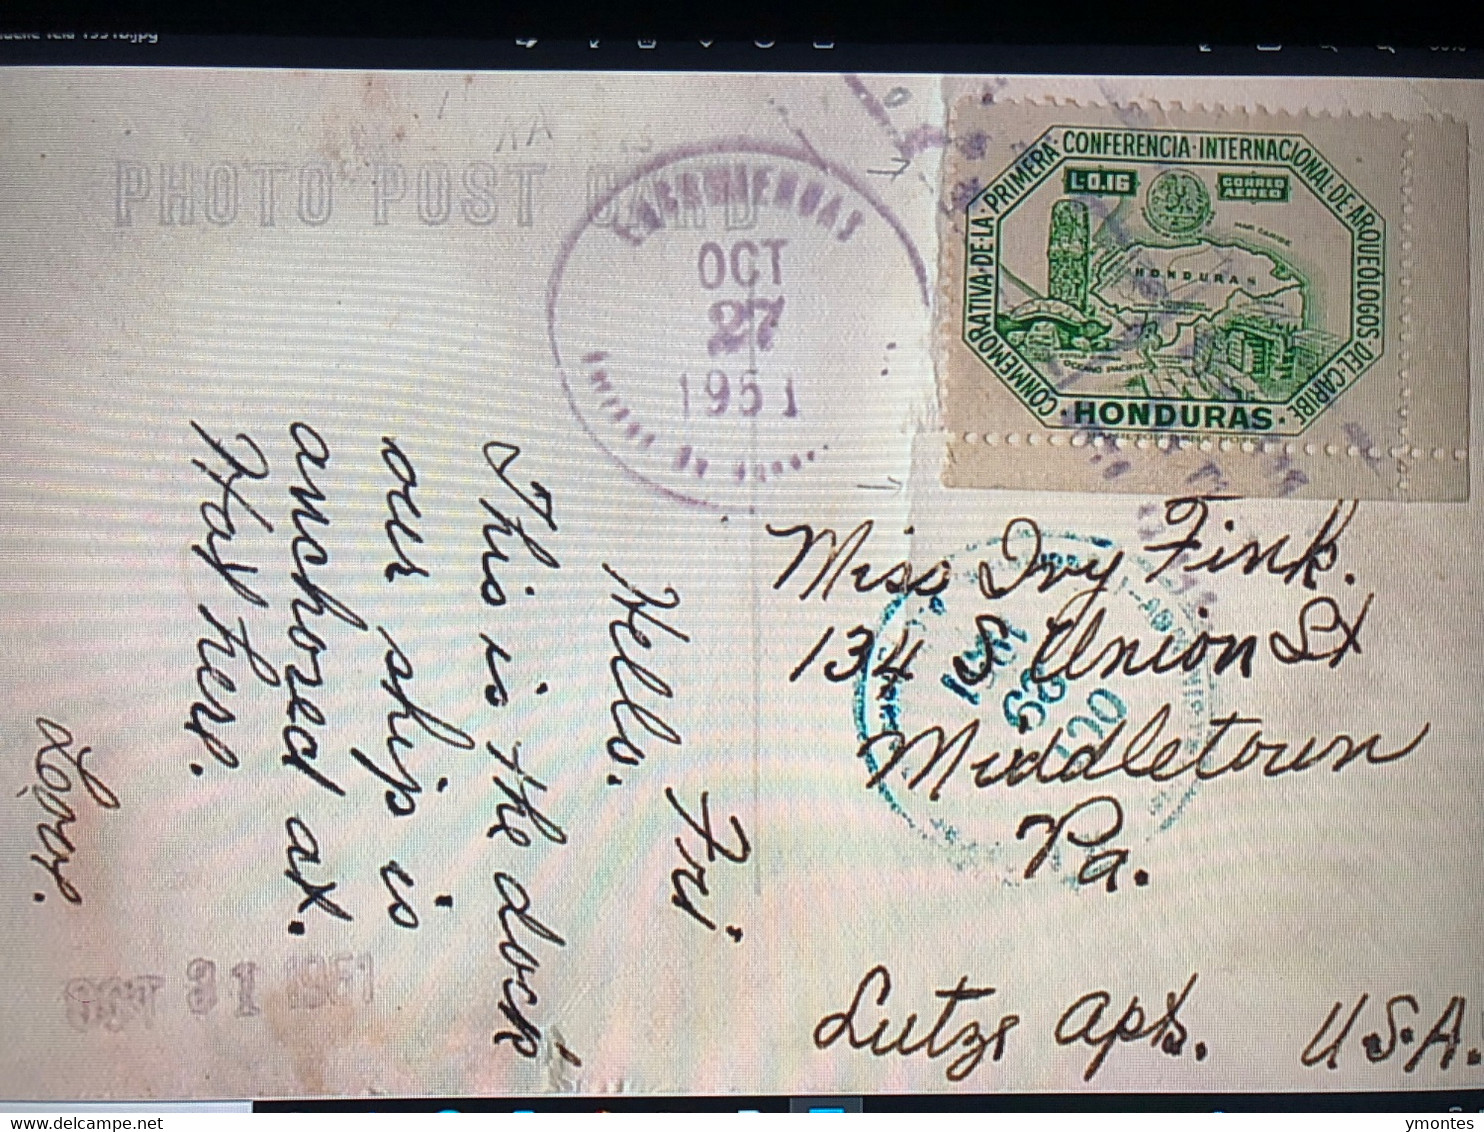 PHOTO POST CARD
OCT
27
1951
CONMEMORATIVA·DE·LA·PRIMERA·CONFERENCIA·INTERNACIONAL·DE·ARQUEÓLOGOS·DEL·CARIBE
L·0.16
CORREO
AEREO
MAR CARIBE
HONDURAS
OCEANO PACIFICO
·HONDURAS·
Miss Ivy Fink.
134 S Union St
Middletown
Pa.
Lutzs apts.
U.S.A.
OCT
29
1951
Fri
Hello.
This is the dock
our ship is
anchored at.
Hay hen.
Love.
OCT 31 1951
ymontes